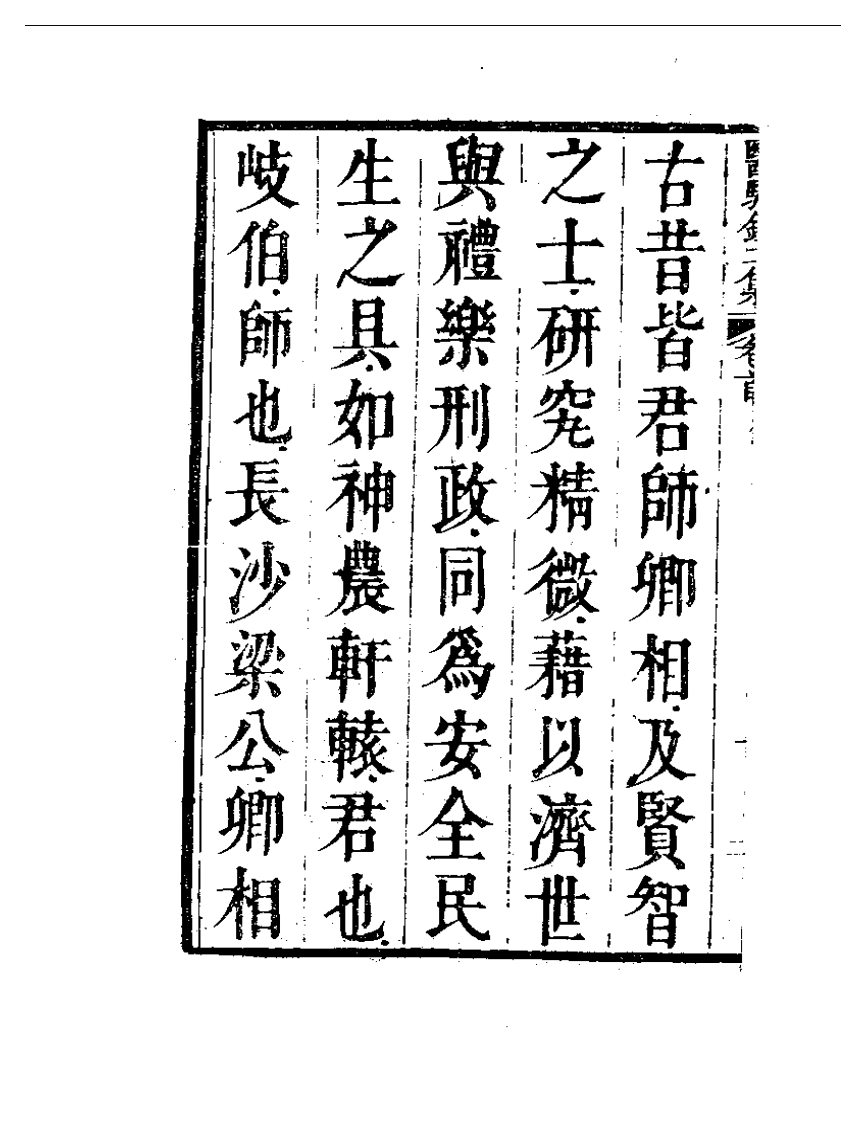 醫驗錄二集 卷首
古昔皆君師卿相及賢智
之士研究精微藉以濟世
與禮樂刑政同為安全民
生之具如神農軒轅君也
岐伯師也長沙梁公卿相